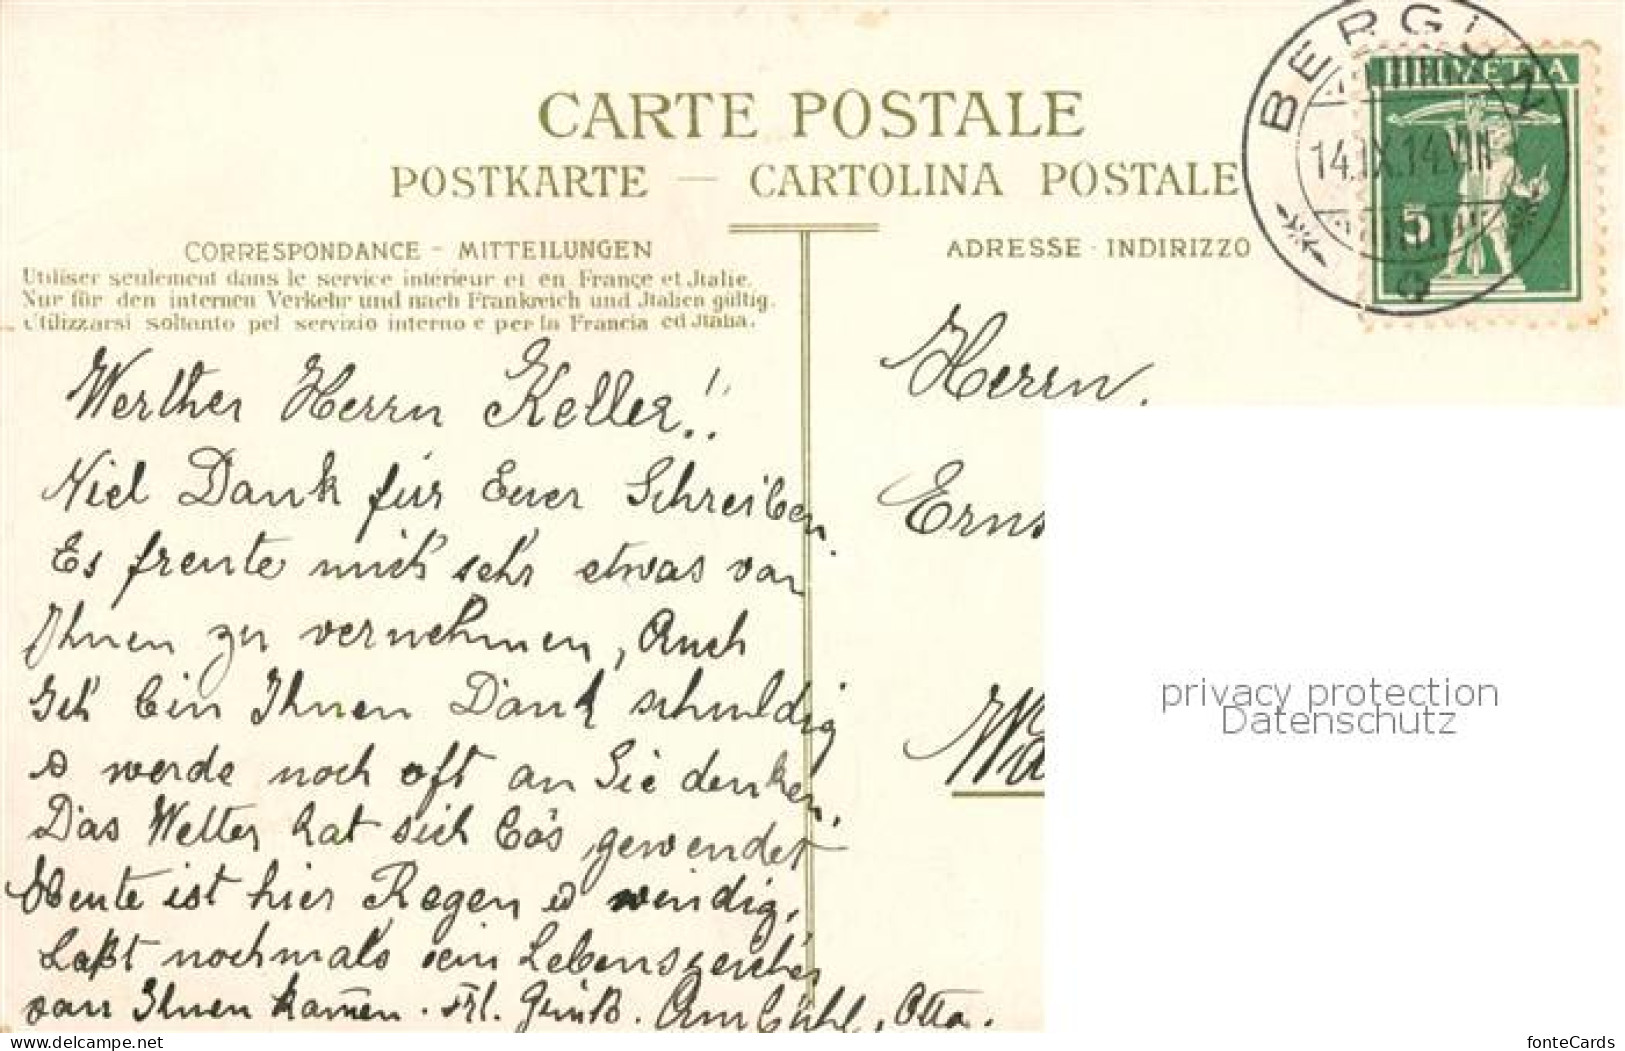 BERGÜN
HELVETIA
14.IX.14.VIII
5
CARTE POSTALE
POSTKARTE — CARTOLINA POSTALE
CORRESPONDANCE - MITTEILUNGEN
Utiliser seulement dans le service intérieur et en France et Jtalie.
Nur für den internen Verkehr und nach Frankreich und Jtalien gültig.
Utilizzarsi soltanto pel servizio interno e per la Francia ed Jtalia.
ADRESSE - INDIRIZZO
Werther Herrn Keller!!
Viel Dank für Euer Schreiben.
Es freute mich sehr etwas von
Ihnen zu vernehmen, Auch
Ich bin Ihnen Dank schuldig
& werde noch oft an Sie denken.
Das Wetter hat sich bös gewendet
Heute ist hier Regen & windig.
Laßt nochmals ein Lebenszeichen
von Ihnen kom̄en. Frl. Gruß. Otto.
Herrn.
Erns
Wä
privacy protection
Datenschutz
www.delcampe.net
fonteCards